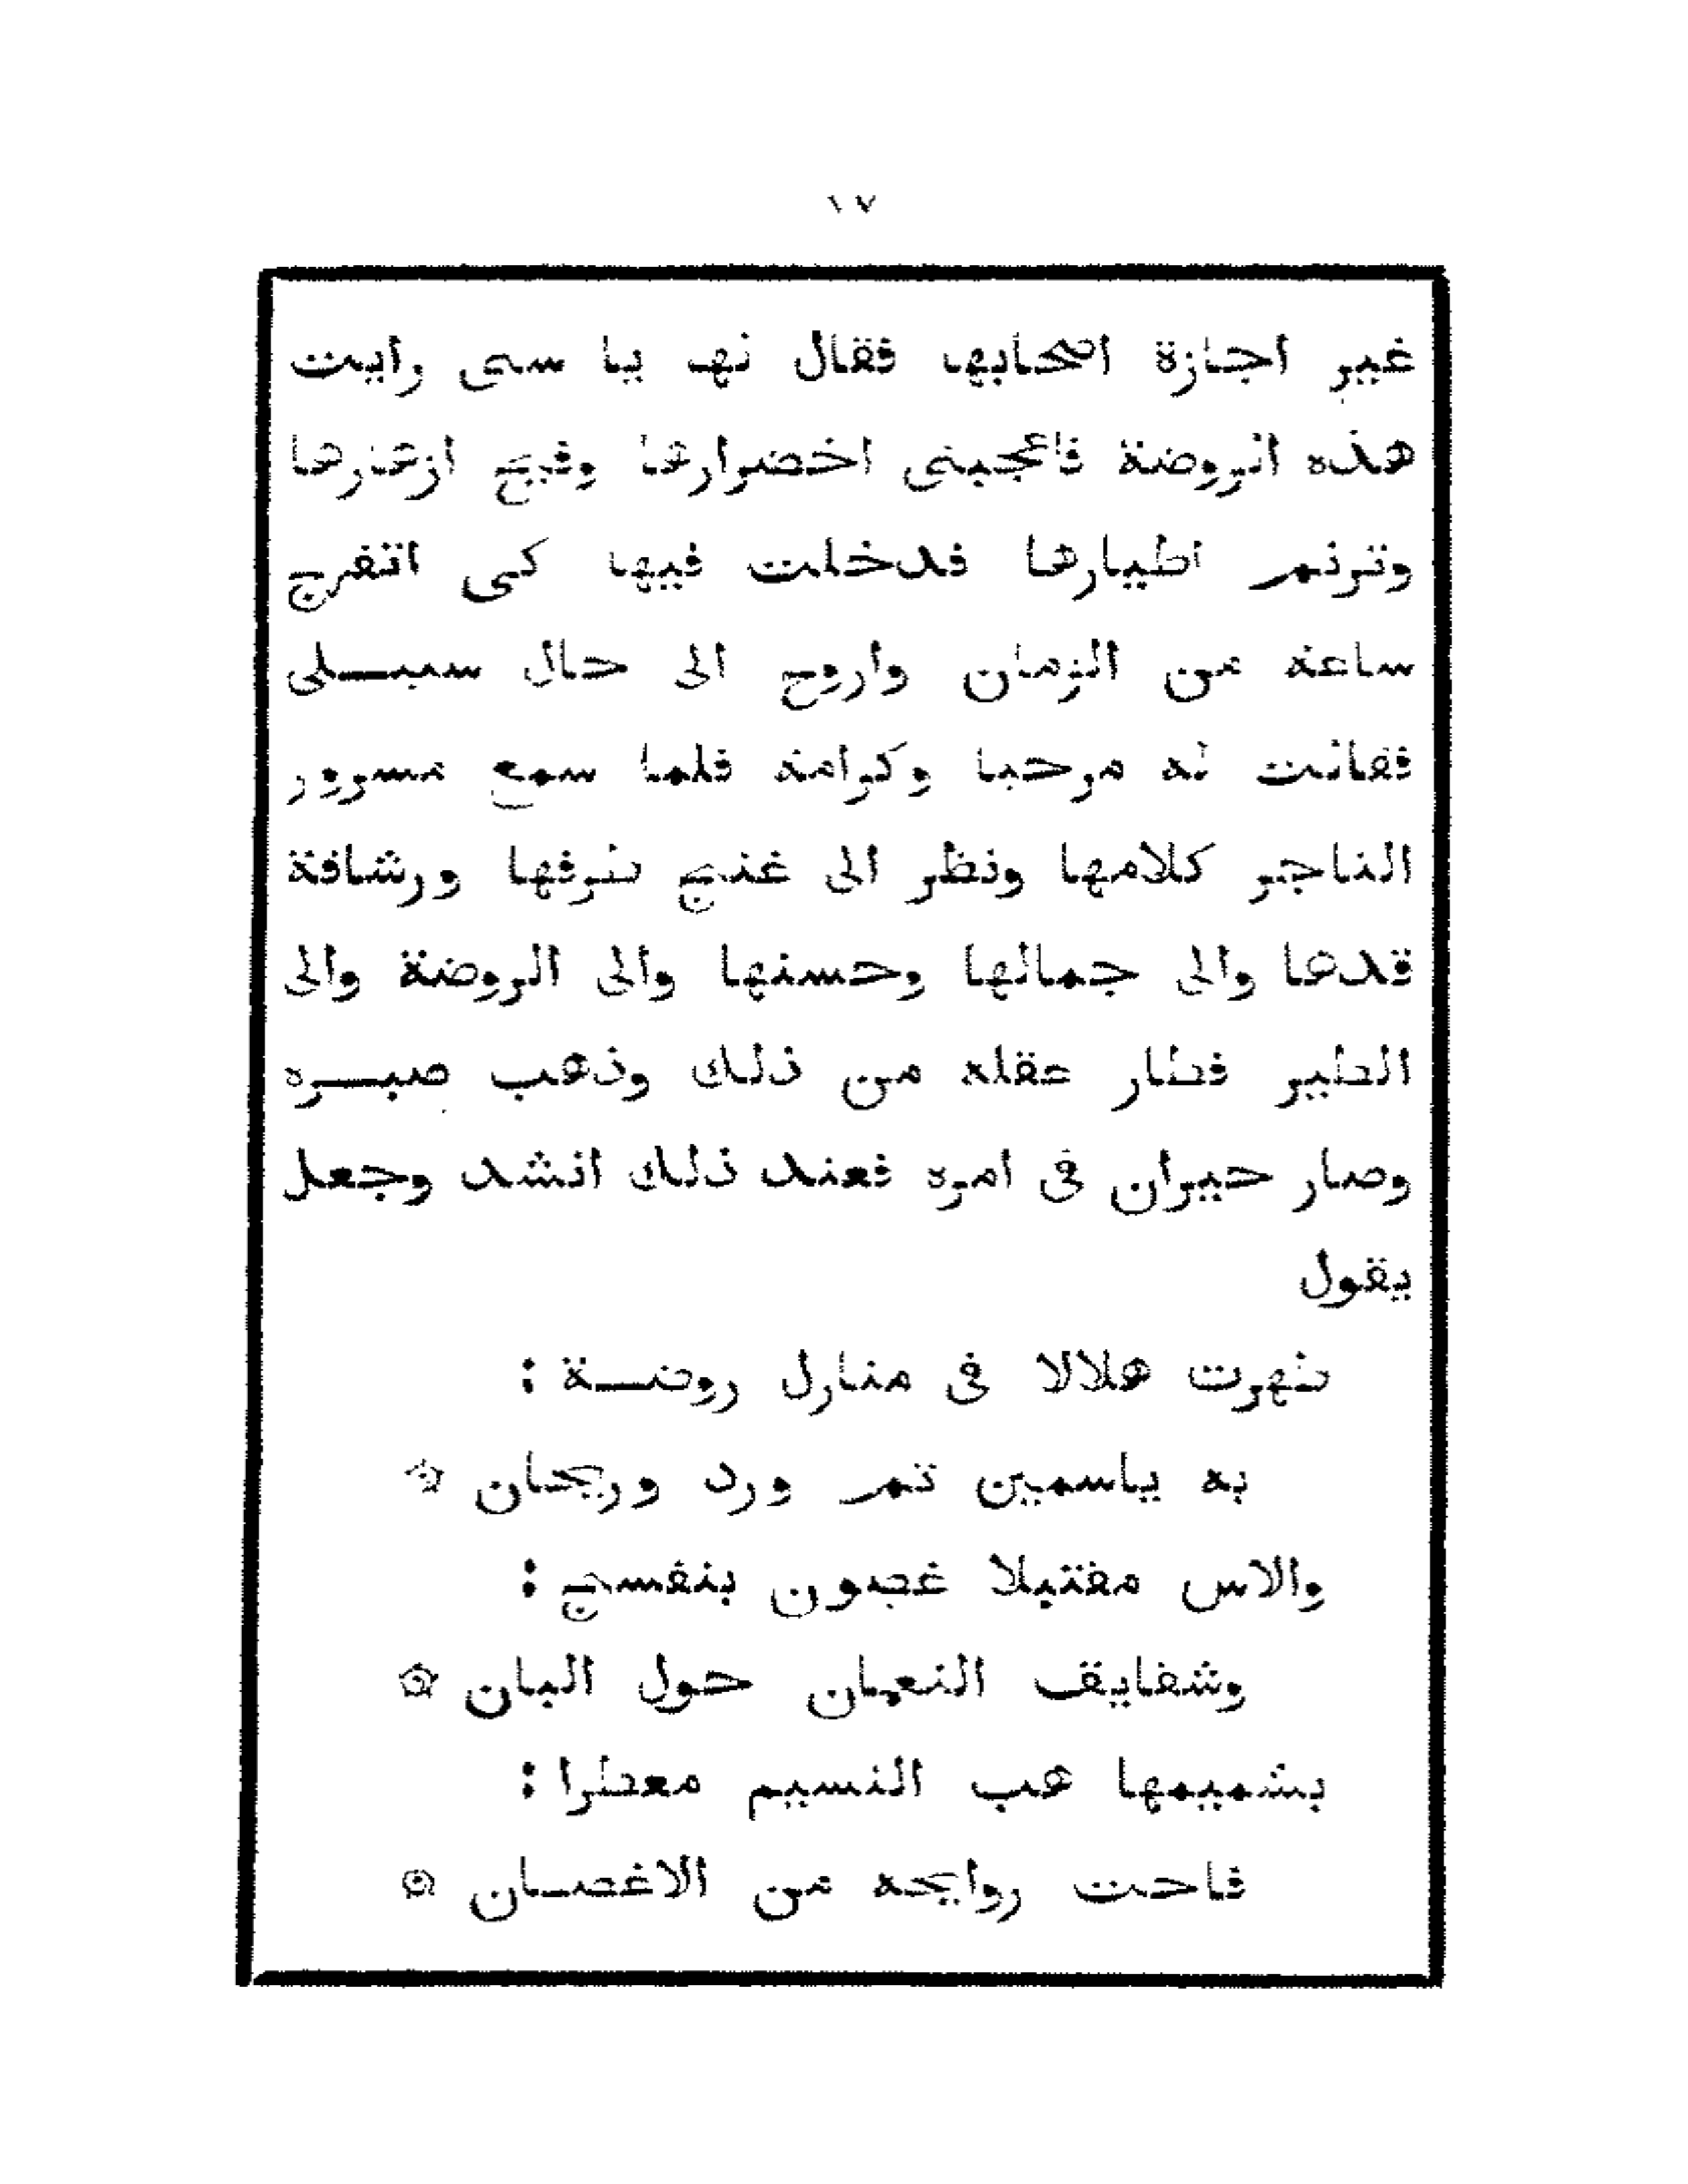 ١٧
غير اجازة اصحابها فقال لها يا ستى رايت
هذه الروضة فاعجبنى اخضرارها وفيج ازهارها
وترنم اطيارها فدخلت فيها كى اتفرج
ساعة من الزمان واروح الى حال سبيلى
فقالت له مرحبا وكرامة فلما سمع مسرور
التاجر كلامها ونظر الى غنج طرفها ورشاقة
قدها والى جمالها وحسنها والى الروضة والى
الطير فطار عقله من ذلك وذهب صبره
وصار حيران فى امره فعند ذلك انشد وجعل
يقول
ظهرت هلالا فى منازل روضة :
به ياسمين ثم ورد وريحان
والاس مقتبلا غصون بنفسج :
وشقايق النعمان حول البان
بشميمها هب النسيم معطرا :
فاحت روايحه من الاغصان